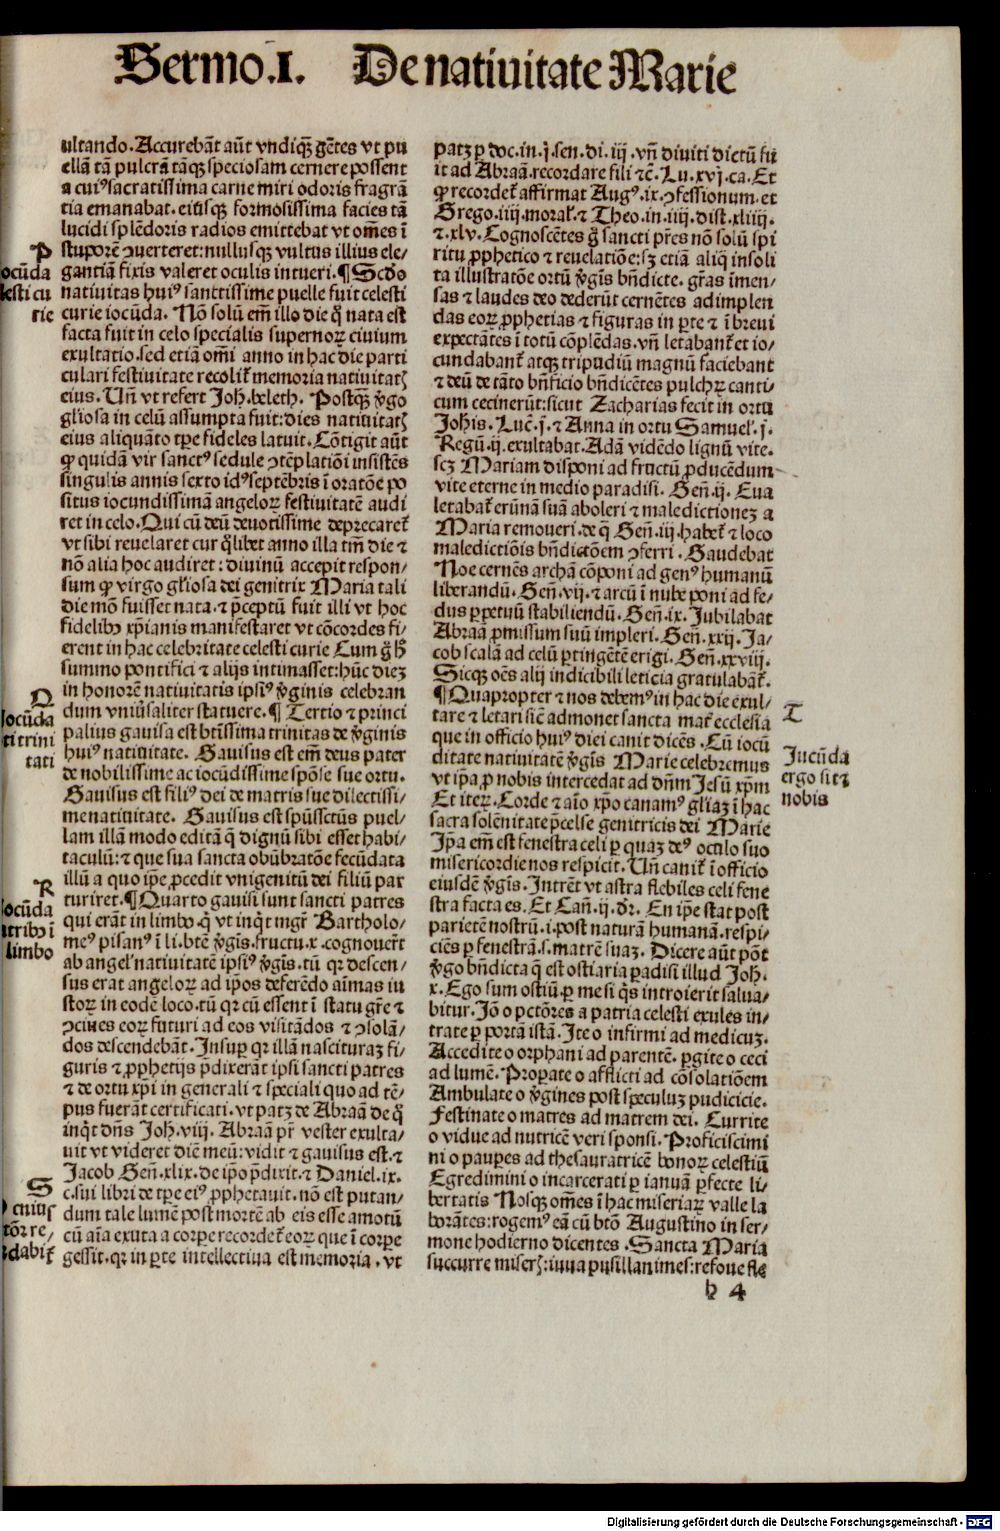 Sermo.I. De natiuitate Marie
ultando. Accurebāt aūt vndiqꝫ gētes vt pu
ellā tā pulcrā tāqꝫ speciosam cernere possent
a cuiꝰ sacratissima carne miri odoris fragrā
tia emanabat. eiusqꝫ formosissima facies tā
lucidi splēdoris radios emittebat vt om̄es ī
stuporē ꝯuerteret: nullusqꝫ vultus illius ele/
gantiā fixis valeret oculis intueri. ¶ Scd̄o
natiuitas huiꝰ sanctissime puelle fuit celesti
curie iocūda. Nō solū em̄ illo die q̄ nata est
facta fuit in celo specialis supernoꝝ ciuium
exultatio. sed etiā om̄i anno in hac die parti
culari festiuitate recolit̄ memoria natiuitatꝭ
eius. Un̄ vt refert Joh̄. beleth. Postqꝫ v̄go
gl̓iosa in celū assumpta fuit: dies natiuitatꝭ
eius aliquāto tp̄e fideles latuit. Cōtigit aūt
ꝙ quidā vir sanctꝰ sedule ꝯtēplatiōi insistēs
singulis annis sexto idꝰ septēbris ī oratōe po
situs iocundissimā angeloꝝ festiuitatē audi
ret in celo. Qui cū deū deuotissime deprecaret̄
vt sibi reuelaret cur q̄libet anno illa tm̄ die ⁊
nō alia hoc audiret: diuinū accepit respon/
sum ꝙ virgo gl̓iosa dei genitrix Maria tali
die mō fuisset nata. ⁊ p̄ceptū fuit illi vt hoc
fidelibꝰ xp̄ianis manifestaret vt cōcordes fi/
erent in hac celebritate celesti curie Cum g̊ hꝭ
summo pontifici ⁊ alijs intimasset: hūc dieꝫ
in honorē natiuitatis ipsiꝰ v̄ginis celebran
dum vniūsaliter statuere. ¶ Tertio ⁊ princi
palius gauisa est btīssima trinitas de v̄ginis
huiꝰ natiuitate. Gauisus est em̄ deus pater
de nobilissime ac iocūdissime spōse sue ortu.
Gauisus est filiꝰ dei de matris sue dilectissi/
me natiuitate. Gauisus est spūssctūs puel/
lam illā modo editā q̄ dignū sibi esset habi/
taculū: ⁊ que sua sancta obūbratōe fecūdata
illū a quo ip̄e ꝓcedit vnigenitū dei filiū par
turiret. ¶ Quarto gauisi sunt sancti patres
qui erāt in limbo. q̄ vt inq̇t mgr̄ Bartholo/
meꝰ pisanꝰ ī li. btē v̄gīs. fructu. x. cognouer̄t
ab angel̓ natiuitatē ipsiꝰ v̄gīs. tū qꝛ descen/
sus erat angeloꝝ ad ip̄os deferēdo aīmas iu
stoꝝ in eodē loco. tū qꝛ cū essent ī statu gr̄e ⁊
ꝯciues eoꝝ futuri ad eos visitādos ⁊ ꝯsolā/
dos descendebāt. Insuꝑ qꝛ illā nascituraꝫ fi/
guris ⁊ ꝓphetijs p̄dixerāt ipsi sancti patres
⁊ de ortu xp̄i in generali ⁊ speciali quo ad tē/
pus fuerāt certificati. vt patꝫ de Abraā de q̊
inq̇t dn̄s Joh̄. viij. Abraā pr̄ vester exulta/
uit vt videret diē meū: vidit ⁊ gauisus est. ⁊
Jacob Gen̄. xlix. de ip̄o p̄dixit. ⁊ Daniel. ix.
c. sui libri de tp̄e eiꝰ ꝓphetauit. nō est putan/
dum tale lumē post mortē ab eis esse amotū
cū aīa exuta a corꝑe recordet̄ eoꝝ que ī corꝑe
gessit. qꝛ in ꝑte intellectiua est memoria. vt
P
ocūda
lesti cu
rie
Q
Jocūda
ti trini
tati
R
ocūda
atribꝰ ī
limbo
S
cuius
tōr re/
rdabit̄
patꝫ ꝑ doc. in. j. sen. di. iij. vn̄ diuiti dictū fu
it ad Abraā. recordare fili ⁊c̄. Lu. xvj. ca. Et
ꝙ recordet̄ affirmat Augꝰ. ix. ꝯfessionum. et
Grego. iiij. moral̓. ⁊ Theo. in. iiij. dist. xliiij.
⁊. xlv. Cognoscētes g̊ sancti pr̄es nō solū spi
ritu ꝓphetico ⁊ reuelatiōe: sꝫ etiā aliq̄ insoli
ta illustratōe ortū v̄gīs bn̄dicte. gr̄as īmen/
sas ⁊ laudes deo dederūt cernētes ad implen
das eoꝝ ꝓphetias ⁊ figuras in ꝑte ⁊ ī breui
expectātes ī totū cōplēdas. vn̄ letabant̄ et io/
cundabant̄ atqꝫ tripudiū magnū faciebant
⁊ deū de tāto bn̄ficio bn̄dicētes pulchꝝ canti/
cum cecinerūt: sicut Zacharias fecit in ortu
Joh̄is. Luc̄. j. ⁊ Anna in ortu Samuel̓. j.
Regū. ij. exultabat. Adā vidēdo lignū vite.
scꝫ Mariam disponi ad fructū ꝓducēdum
vite eterne in medio paradisi. Gen̄. ij. Eua
letabat̄ erūnā suā aboleri ⁊ maledictionez a
Maria remoueri. de q̄ Gen̄. iij. habet̄ ⁊ loco
maledictiōis bn̄dictōem ꝯferri. Gaudebat
Noe cernēs archā cōponi ad genꝰ humanū
liberandū. Gen̄. vij. ⁊ arcū ī nube poni ad fe/
dus ꝑpetuū stabiliendū. Gen̄. ix. Jubilabat
Abraā ꝓmissum suū impleri. Gen̄. xxij. Ja/
cob scalā ad celū ꝑtingētē erigi. Gen̄. xxviij.
Sicqꝫ oēs alij indicibili leticia gratulabāt̄.
¶ Quapropter ⁊ nos debemꝰ in hac die exul/
tare ⁊ letari sic̄ admonet sancta mat̄ ecclesia
que in officio huiꝰ diei canit dicēs. Cū iocū
ditate natiuitatē v̄gīs Marie celebremus
vt ip̄a ꝓ nobis intercedat ad dn̄m Jesū xp̄m
Et iteꝝ. Corde ⁊ aīo xp̄o canamꝰ gl̓iaꝫ ī hac
sacra solēnitate p̄celse genitricis dei Marie
Ip̄a em̄ est fenestra celi ꝑ quaꝫ deꝰ oculo suo
misericordie nos respicit. Un̄ canit̄ ī officio
eiusdē v̄gīs. Intrēt vt astra flebiles celi fene
stra facta es. Et Can̄. ij. dr̄. En ip̄e stat post
parietē nostrū. i. post naturā humanā. respi/
ciēs ꝑ fenestrā. s. matrē suaꝫ. Dicere aūt pōt
v̄go bn̄dicta q̄ est ostiaria ꝑadisi illud Joh̄.
x. Ego sum ostiū. ꝑ me si q̇s introierit salua/
bitur. Jō o pctōres a patria celesti exules in/
trate ꝑ portā istā. Ite o infirmi ad medicuꝫ.
Accedite o orphani ad parentē. ꝑgite o ceci
ad lumē. Proꝑate o afflicti ad cōsolatiōem
Ambulate o v̄gines post speculuꝫ pudicicie.
Festinate o matres ad matrem dei. Currite
o vidue ad nutricē veri sponsi. Proficiscimi
ni o pauꝑes ad thesauratricē bonoꝝ celestiū
Egredimini o incarcerati ꝑ ianuā ꝑfecte li/
bertatis Nosqꝫ om̄es ī hac miseriaꝝ valle la
borātes: rogemꝰ eā cū btō Augustino in ser/
mone hodierno dicentes. Sancta Maria
succurre miserꝭ: iuua pusillanimes: refoue fle
T
Jucūda
ergo sit ⁊
nobis
h 4
Digitalisierung gefördert durch die Deutsche Forschungsgemeinschaft - DFG